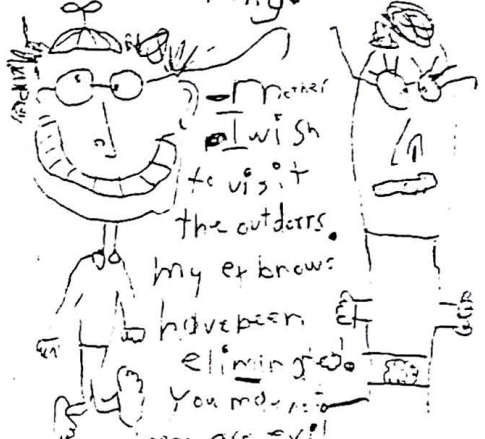 -Mother
I wish
to visit
the outdoors.
my
have been
eliminated.
You may not
are evil